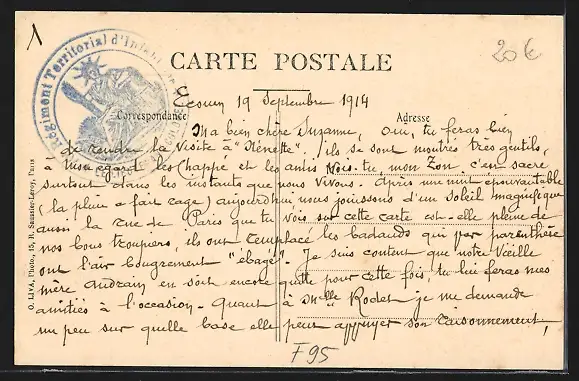 1
20 €
Régiment Territorial d'Infanterie
CARTE POSTALE
Correspondance
Adresse
Ecouen 19 Septembre 1914
Ma bien chère Suzanne, Oui, tu feras bien
de rendre la visite à "Nénette". Ils se sont montrés très gentils,
à mon égard les et les amis vois-tu, mon Zon, c'en sacré
surtout dans les instants que nous vivons. Après une nuit épouvantable
(la pluie a fait rage) aujourd'hui nous jouissons d'un soleil magnifique
aussi la rue de Paris que tu vois sur cette carte est-elle pleine de
nos bons troupiers, ils ont remplacé les badauds qui par parenthèse
ont l'air bougrement "ébagé". Je suis content que notre vieille
mère Audrain en soit encore quitte pour cette fois, tu lui feras mes
amitiés à l'occasion. Quant à Melle Rodet je me demande
un peu sur quelle base elle peut appuyer son raisonnement,
O. LIVA, Photo., 15, R. Saussier-Leroy, Paris
F95